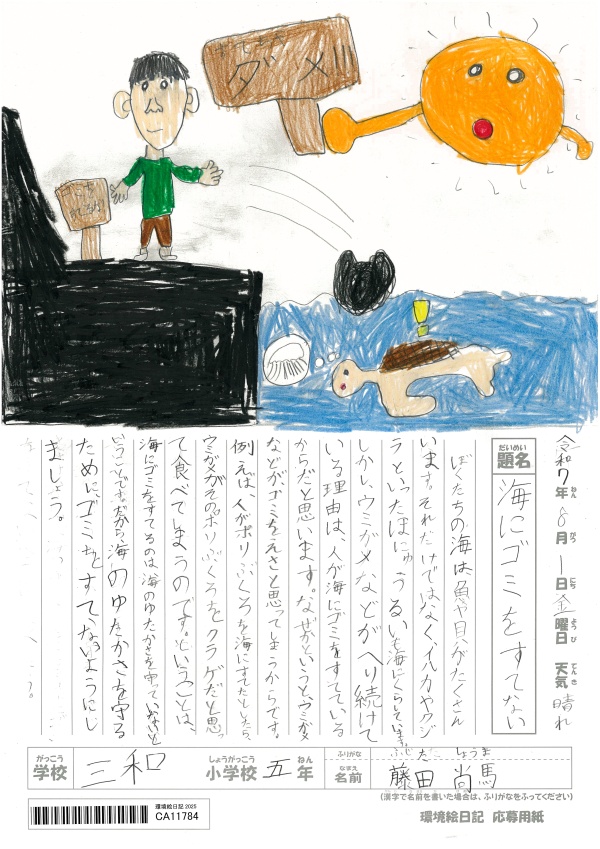 ダメ!!
ゴミを
すてるな!
令和7年8月1日金曜日 天気 晴れ
ねん がつ にち ようび てんき
だいめい
題名
海にゴミをすてない
ぼくたちの海は、魚や貝がたくさん
います。それだけではなくイルカやクジ
ラといったほにゅうるいも海にくらしています。
しかし、ウミガメなどがへり続けて
いる理由は、人が海にゴミをすてている
からだと思います。なぜかというと、ウミガメ
などが、ゴミをえさと思ってしまうからです。
例えば、人がポリぶくろを海にすてたとしたら、
ウミガメがそのポリぶくろをクラゲだと思っ
て食べてしまうのです。ということは、
海にゴミをすてるのは海のゆたかさを守っていないと
いうことです。だから、海のゆたかさを守る
ために、ゴミをすてないようにし
ましょう。
がっこう
学校
三和
しょうがっこう
小学校
五
ねん
年
ふりがな
なまえ
名前
ふじた しょうま
藤田 尚馬
(漢字で名前を書いた場合は、ふりがなをふってください)
環境絵日記 2025
CA11784
環境絵日記 応募用紙